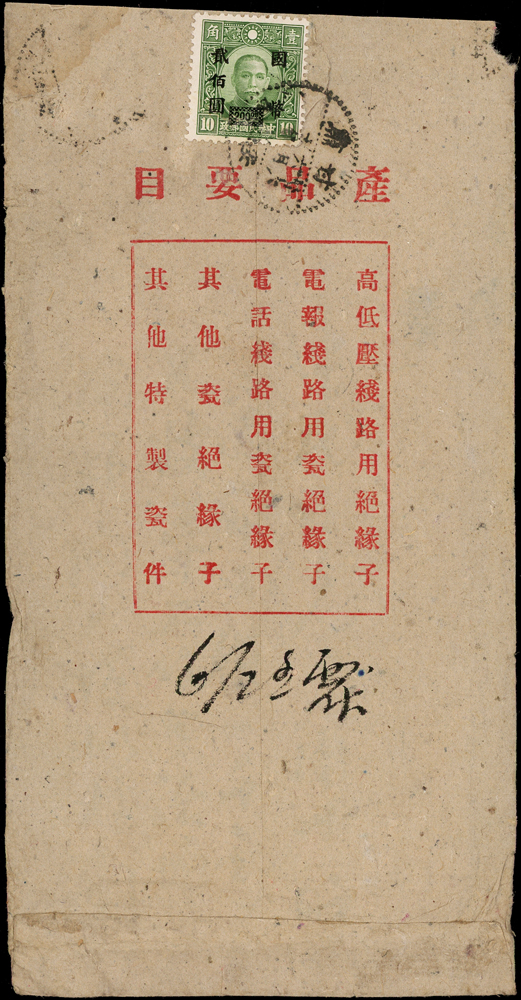 壹角
國幣
貳佰圓
200
10 10
中華民國郵政
產品要目
高低壓綫路用絕緣子
電報綫路用瓷絕緣子
電話綫路用瓷絕緣子
其他瓷絕緣子
其他特製瓷件